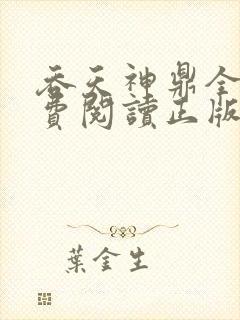 吞天神鼎全
費閱讀正版
葉金生